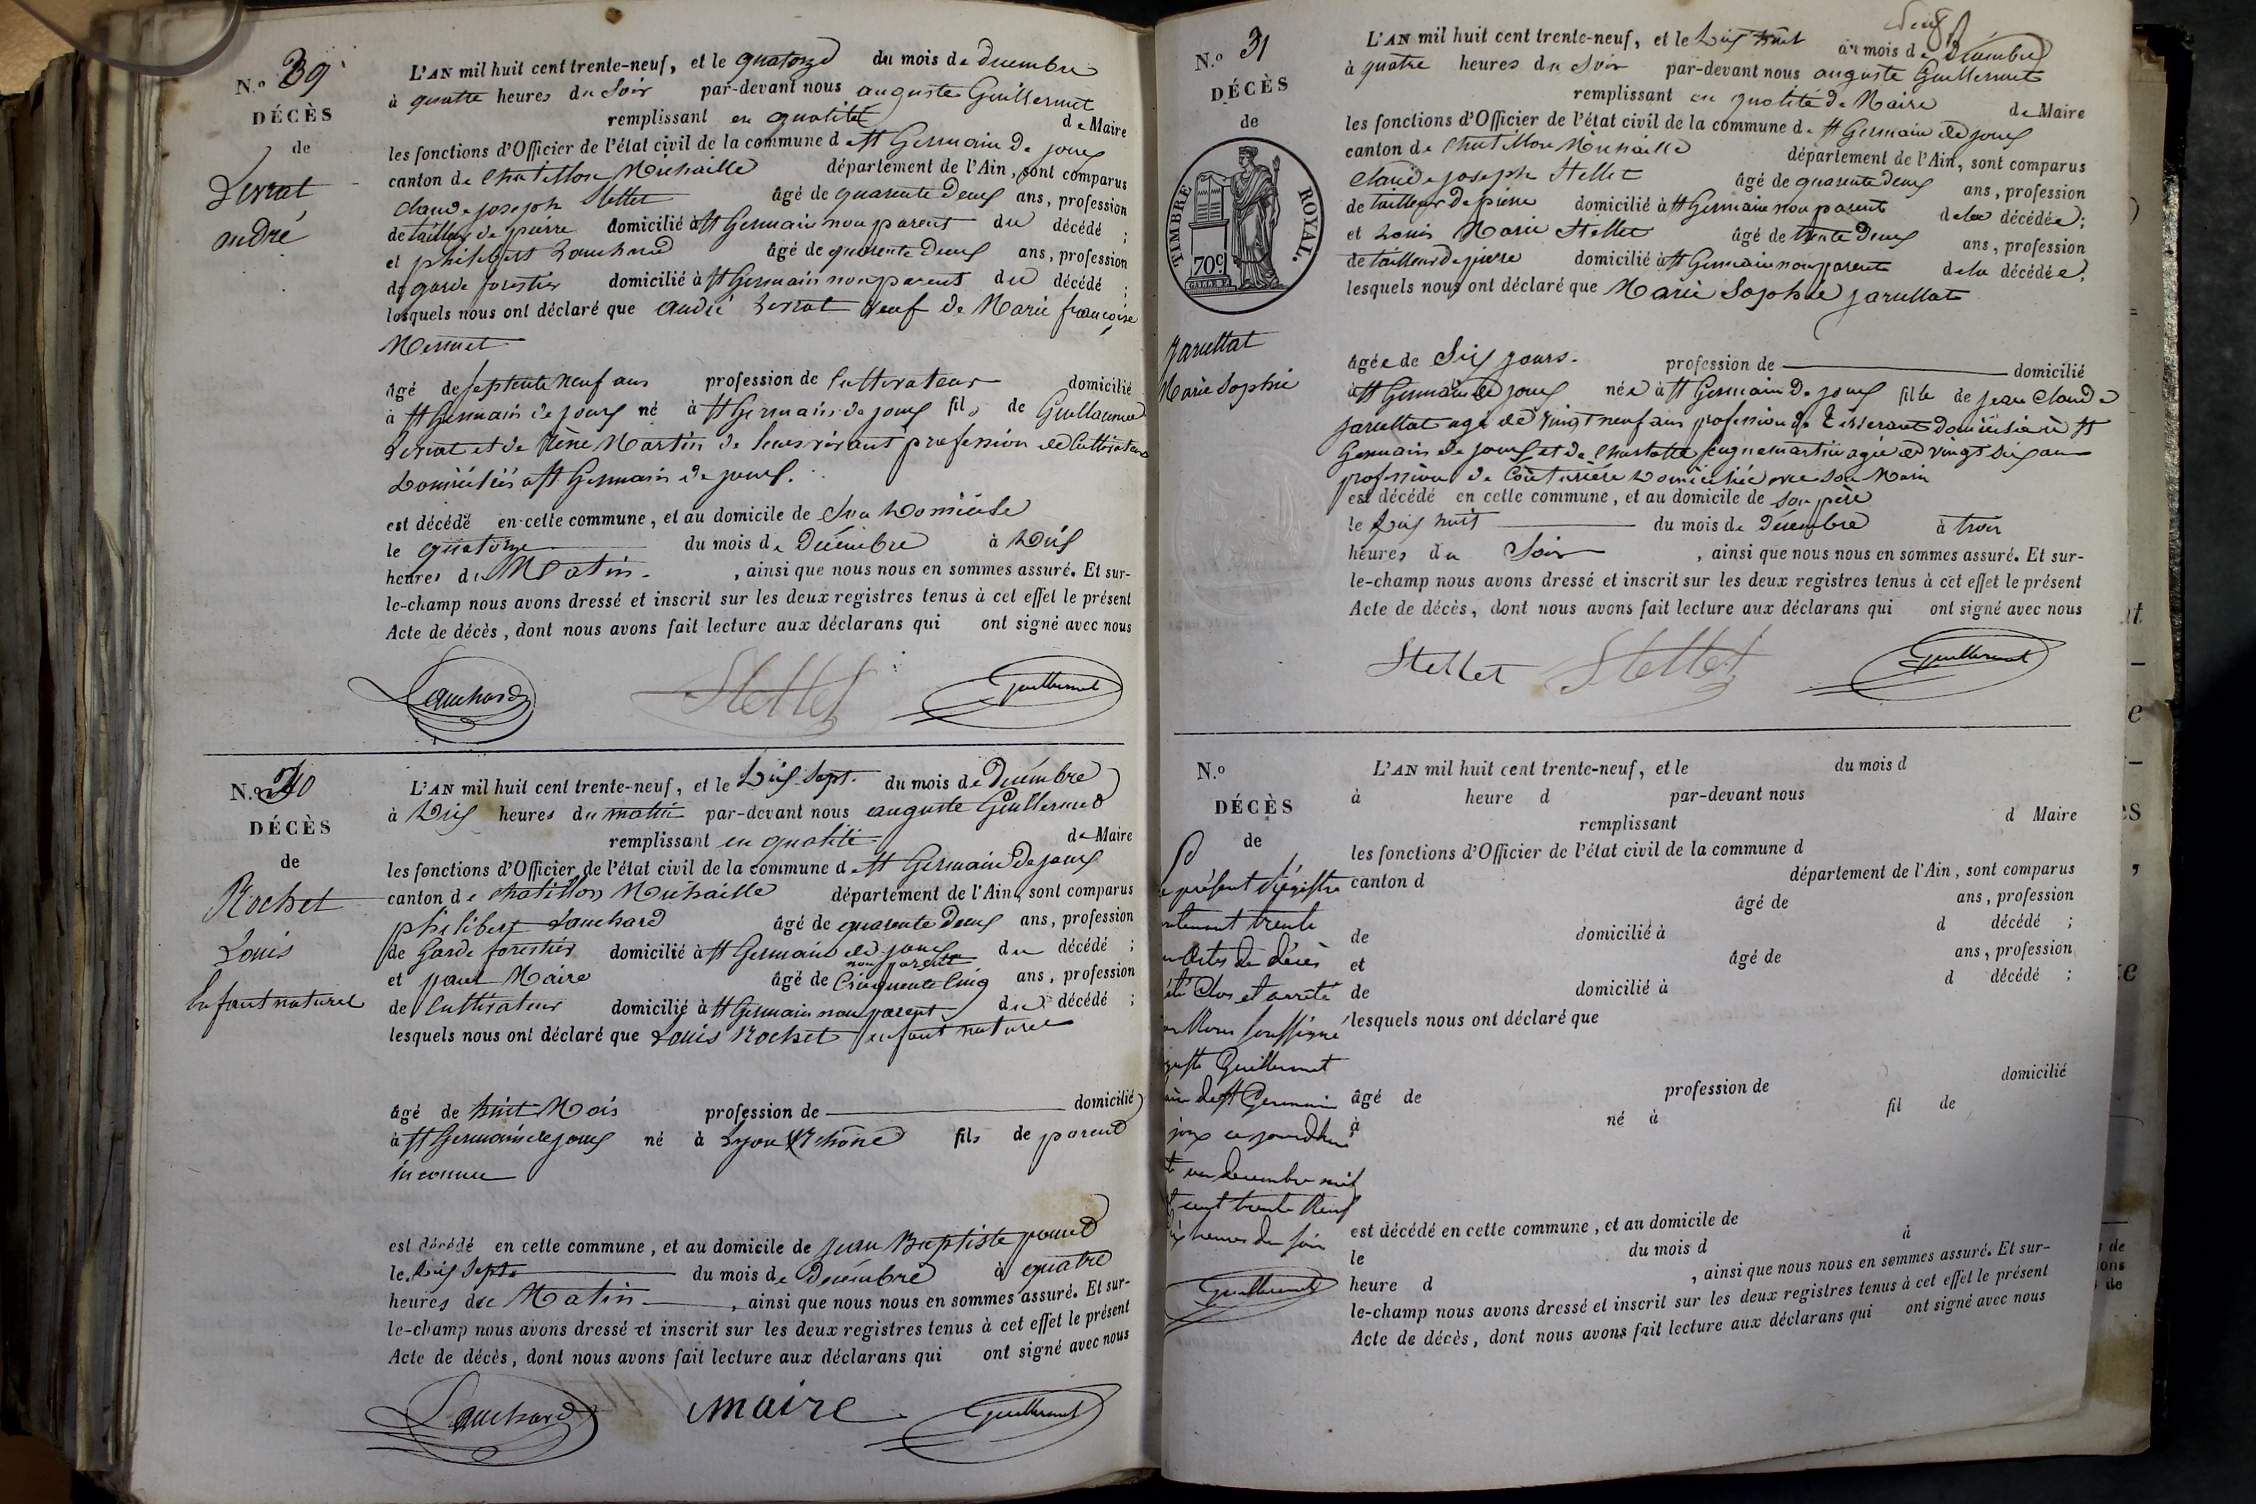 N.o 39
DÉCÈS
de
Levrat
andré
L'AN mil huit cent trente-neuf, et le quatorze du mois de decembre
à quatre heures du soir par-devant nous auguste Guillermet
remplissant en qualité de Maire
les fonctions d'Officier de l'état civil de la commune de St Germain de joux
canton de Chatillon Michaille département de l'Ain, sont comparus
claude joseph Stellet âgé de quarente deux ans, profession
de tailleur de pierre domicilié à St Germain non parent du décédé ;
et philibert Lauchard âgé de quarente deux ans, profession
de garde forestier domicilié à St Germain non parent du décédé ;
lesquels nous ont déclaré que andré Levrat veuf de Marie françoise
Mermet
âgé de septente neuf ans profession de Cultivateur domicilié
à St Germain de joux né à St Germain de joux fils de Guillaume
Levrat et de Martin de leurs vivant profession de Cultivateur
Domiciliés a St Germain de joux.
est décédé en cette commune, et au domicile de Son Domicile
le quatorze du mois de Decembre à Dix
heures du Matin. , ainsi que nous nous en sommes assuré. Et sur-
le-champ nous avons dressé et inscrit sur les deux registres tenus à cet effet le présent
Acte de décès, dont nous avons fait lecture aux déclarans qui ont signé avec nous
Lauchard Stellet Guillermet
N.o 30
DÉCÈS
de
Rochet
Louis
Enfant naturel
L'AN mil huit cent trente-neuf, et le Dix Sept. du mois de Decembre
à Dix heures du matin par-devant nous auguste Guillermet
remplissant en qualité de Maire
les fonctions d'Officier de l'état civil de la commune de St Germain de joux
canton de Chatillon Michaille département de l'Ain, sont comparus
philibert Lauchard âgé de quarente deux ans, profession
de Garde forestier domicilié à St Germain de joux du décédé ;
non parent
et paul Maire âgé de Cinquente Cinq ans, profession
de Cultivateur domicilié à St Germain non parent du décédé ;
lesquels nous ont déclaré que Louis Rochet enfant naturel
âgé de huit Mois profession de domicilié
à St Germain de joux né à Lyon Rhône fils de parent
inconnu
est décédé en cette commune, et au domicile de Jean Baptiste
le Dix Sept. du mois de Decembre à quatre
heures du Matin , ainsi que nous nous en sommes assuré. Et sur-
le-champ nous avons dressé et inscrit sur les deux registres tenus à cet effet le présent
Acte de décès, dont nous avons fait lecture aux déclarans qui ont signé avec nous
Lauchard maire Guillermet
N.o 31
DÉCÈS
de
TIMBRE ROYAL.
70c
Jarullat
Marie Sophie
neuf
L'AN mil huit cent trente-neuf, et le Dix huit du mois de Décembre
à quatre heures du Soir par-devant nous auguste Guillermet
remplissant en qualité de Maire de Maire
les fonctions d'Officier de l'état civil de la commune de St Germain de joux
canton de Chatillon Michaille département de l'Ain, sont comparus
Claude joseph Stellet âgé de quarente deux ans, profession
de tailleur de pierre domicilié à St Germain non parent de la décédée ;
et Louis Marie Stellet âgé de trente deux ans, profession
de tailleur de pierre domicilié à St Germain non parente de la décédée ;
lesquels nous ont déclaré que Marie Sophie jarullat
âgée de Six jours. profession de domicilié
à St Germain de joux née à St Germain de joux fille de jean Claude
jarullat agé de vingt neuf ans profession de Tisserant domicilié à St
Germain de joux et de Charlotte agée de vingt six ans
profession de Couturière Domiciliée avec son Mari
est décédé en cette commune, et au domicile de son père
le Dix huit du mois de Décembre à trois
heures du Soir , ainsi que nous nous en sommes assuré. Et sur-
le-champ nous avons dressé et inscrit sur les deux registres tenus à cet effet le présent
Acte de décès, dont nous avons fait lecture aux déclarans qui ont signé avec nous
Stellet Stellet Guillermet
N.o
DÉCÈS
de
présent Régistre
trente
actes de décès
été Clos et arrêté
Nous soussigné
Guillermet
de St Germain
joux ce jourd'hui
un decembre mil
cent trente Neuf
heures du soir
Guillermet
L'AN mil huit cent trente-neuf, et le du mois d
à heure d par-devant nous
remplissant d Maire
les fonctions d'Officier de l'état civil de la commune d
canton d département de l'Ain, sont comparus
âgé de ans, profession
de domicilié à d décédé ;
et âgé de ans, profession
de domicilié à d décédé ;
lesquels nous ont déclaré que
âgé de profession de domicilié
à né à fil de
est décédé en cette commune, et au domicile de
le du mois d à
heure d , ainsi que nous nous en sommes assuré. Et sur-
le-champ nous avons dressé et inscrit sur les deux registres tenus à cet effet le présent
Acte de décès, dont nous avons fait lecture aux déclarans qui ont signé avec nous